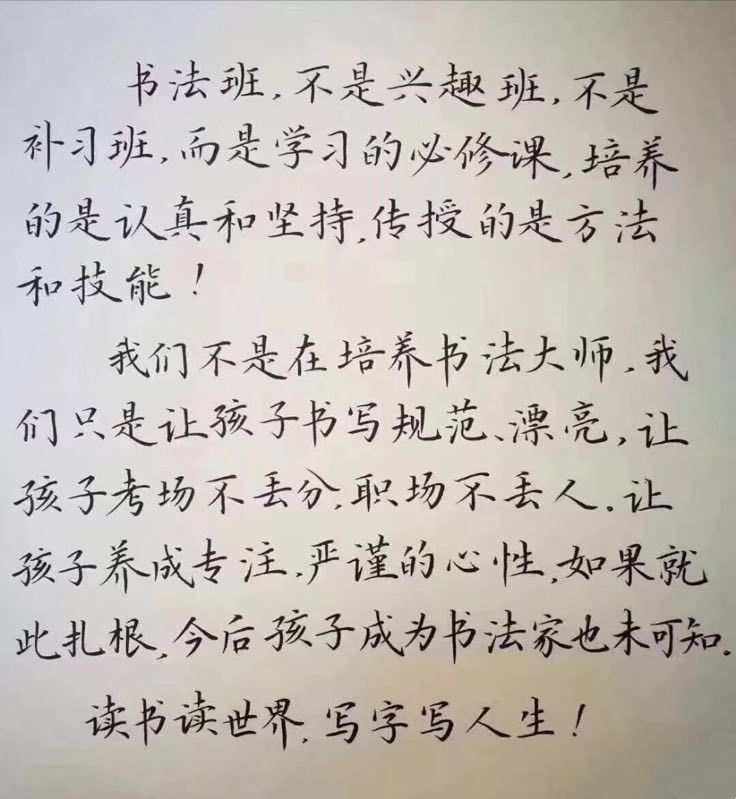 书法班,不是兴趣班,不是
补习班,而是学习的必修课,培养
的是认真和坚持,传授的是方法
和技能!
我们不是在培养书法大师,我
们只是让孩子书写规范、漂亮,让
孩子考场不丢分,职场不丢人.让
孩子养成专注,严谨的心性,如果就
此扎根,今后孩子成为书法家也未可知.
读书读世界,写字写人生!